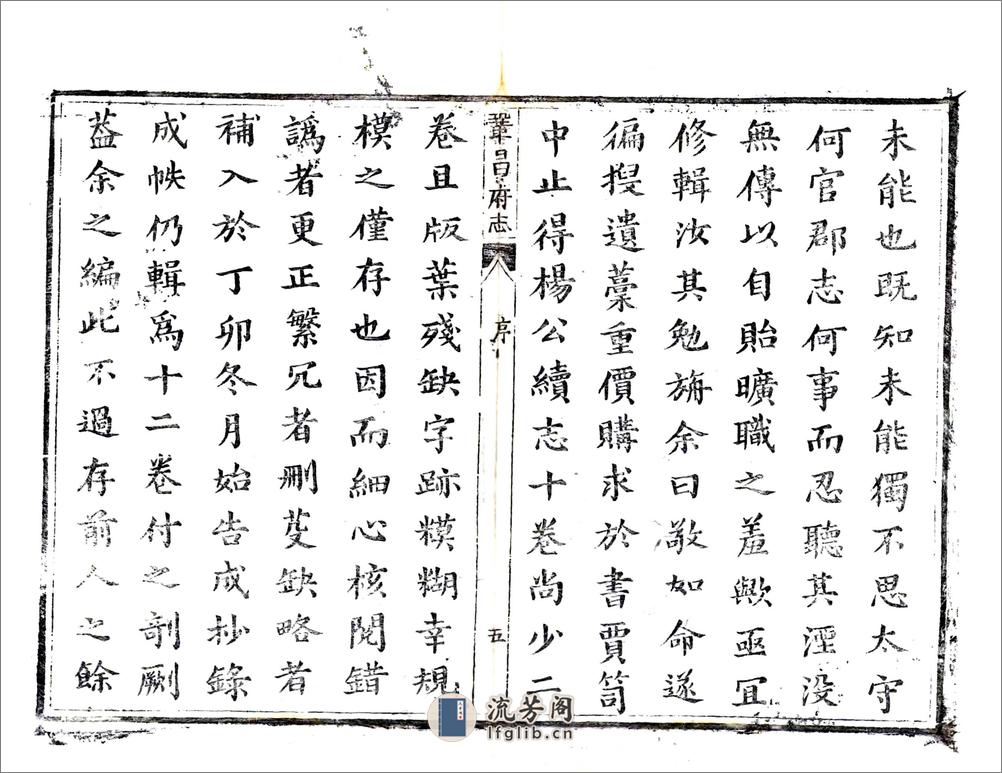 未能也既知未能獨不思太守
何官郡志何事而忍聽其湮没
無傳以自貽曠職之羞歟亟宜
修輯汝其勉旃余曰敬如命遂
徧搜遺藁重價購求於書賈笥
中止得楊公續志十卷尚少二
鞏昌府志
序
五
卷且版葉殘缺字跡糢糊幸規
模之僅存也因而細心核閱錯
譌者更正繁冗者刪芟缺略者
補入於丁卯冬月始告成抄錄
成帙仍輯爲十二卷付之剞劂
葢余之編此不過存前人之餘
流芳阁
lfglib.cn